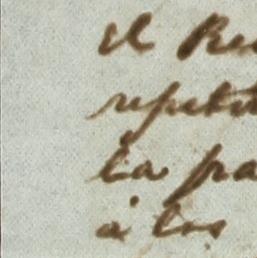 el Re
repeti
la pa
á los